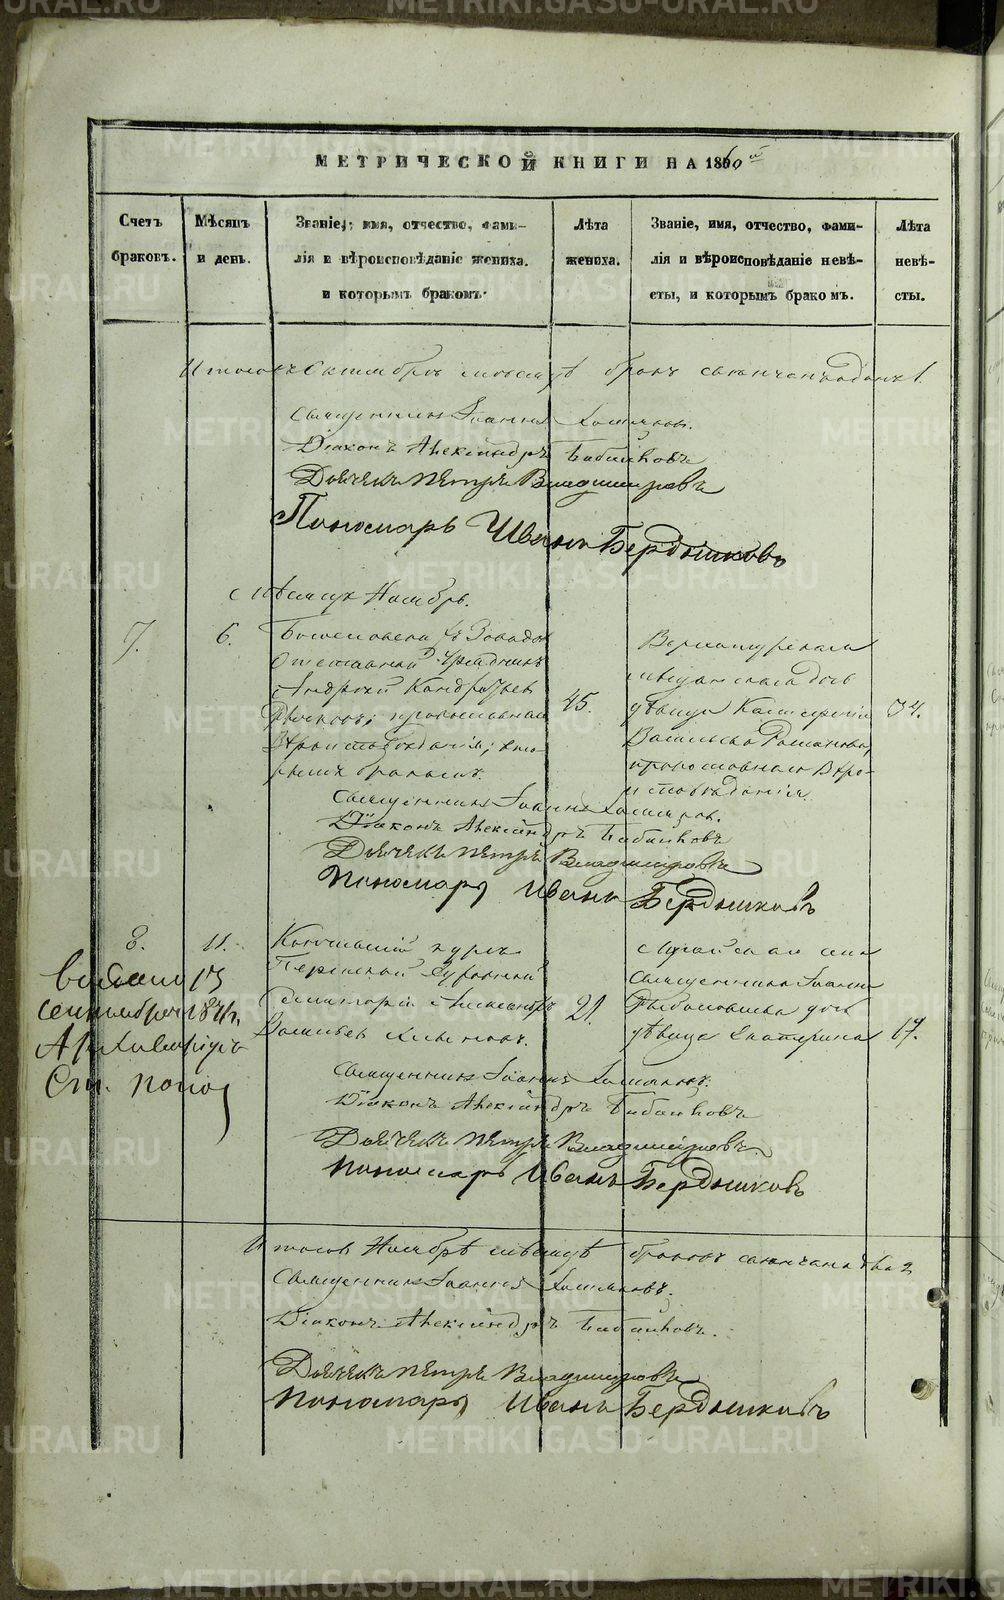 МЕТРИЧЕСКОЙ КНИГИ НА 1860й
Счетъ браковъ.
Мѣсяцъ и день.
Званіе, имя, отчество, фами-
лія и вѣроисповѣданіе жениха.
и которымъ бракомъ.
Лѣта жениха.
Званіе, имя, отчество, фами-
лія и вѣроисповѣданіе невѣ-
сты, и которымъ бракомъ.
Лѣта невѣ-
сты.
Итого въ Октябрѣ мѣсяцѣ бракъ свѣнчанъ одинъ 1.
Священникъ Іоаннъ
Діаконъ Александръ Бабайловъ
Дьячекъ Петръ Владимировъ
Пономарь Иванъ Бердышковъ
мѣсяцъ Ноябрь.
7.
6.
Богословскихъ Заводов
отставной Урядникъ
Андрей Кондратьев
православнаго
вѣроисповѣданія; вто-
рымъ бракомъ.
45.
Верхотурская
мѣщанская дочь
дѣвица Катерина
Васильева Романова,
православнаго вѣро-
исповѣданія.
34.
Священникъ Іоаннъ
Діаконъ Александръ Бабайловъ
Дьячекъ Петръ Владимировъ
Пономарь Иванъ Бердышковъ
8.
11.
Кончившій курсъ
Пермской Духовной
Семинаріи Александръ
Васильев
21.
Священника Іоанна
дочь
дѣвица Екатерина
17.
13
сентября
Священникъ Іоаннъ
Діаконъ Александръ Бабайловъ
Дьячекъ Петръ Владимировъ
Пономарь Иванъ Бердышковъ
Итого въ Ноябрѣ мѣсяцѣ браковъ свѣнчано два 2
Священникъ Іоаннъ
Діаконъ Александръ Бабайловъ.
Дьячекъ Петръ Владимировъ
Пономарь Иванъ Бердышковъ
METRIKI.GASO-URAL.RU